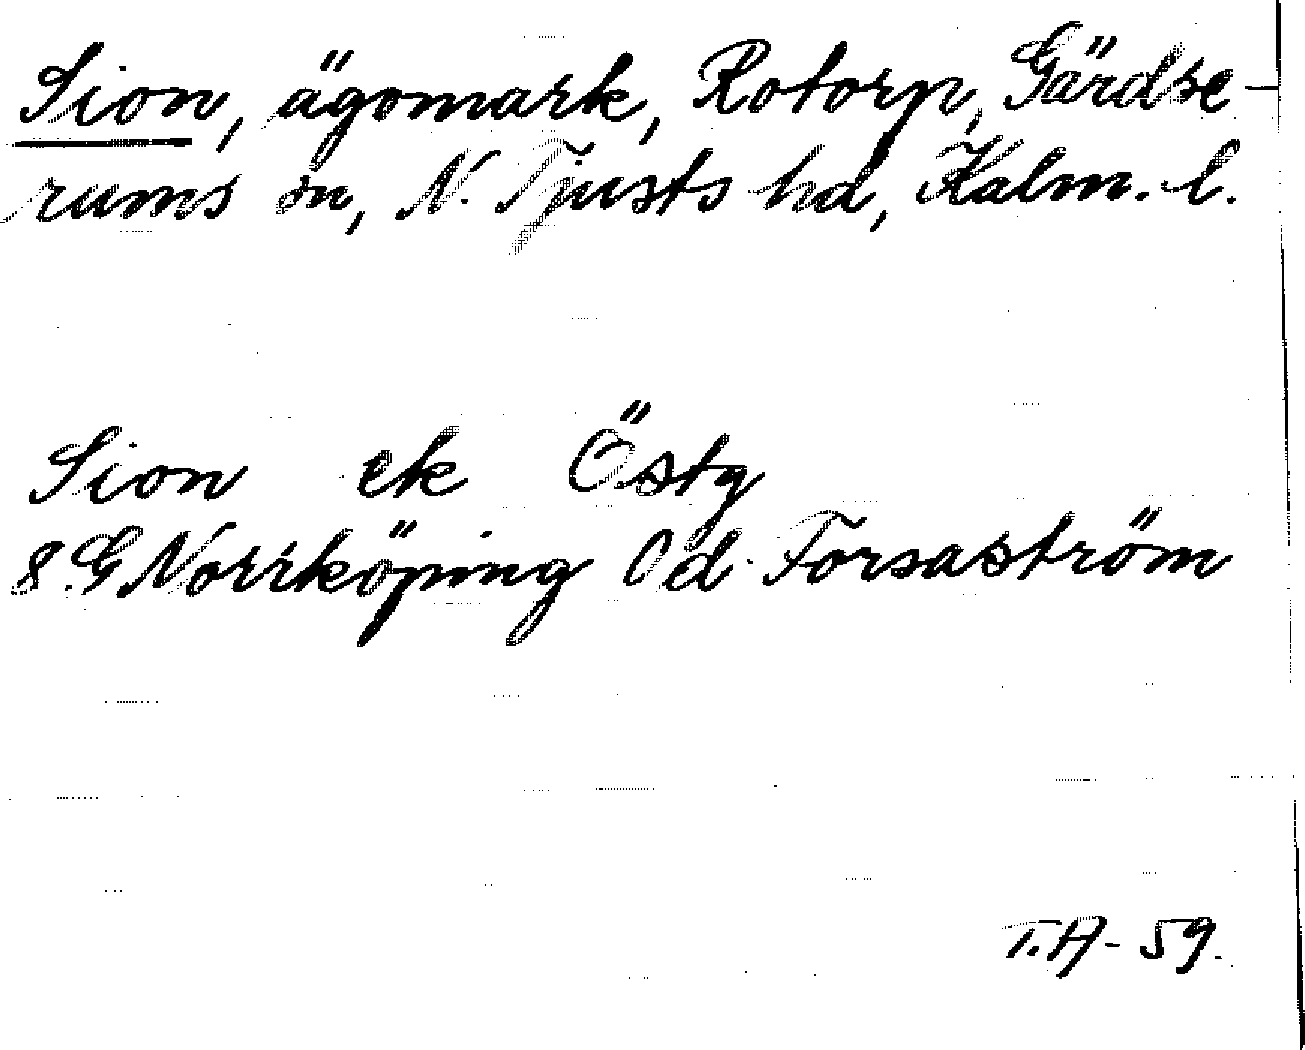 Sion, ägomark, Rotorp, Gärdse-
rums sn, N. Tjusts hd, Kalm. l.
Sion ek Östg
8.G Norrköping Od. Forsaström
T.A - 59.